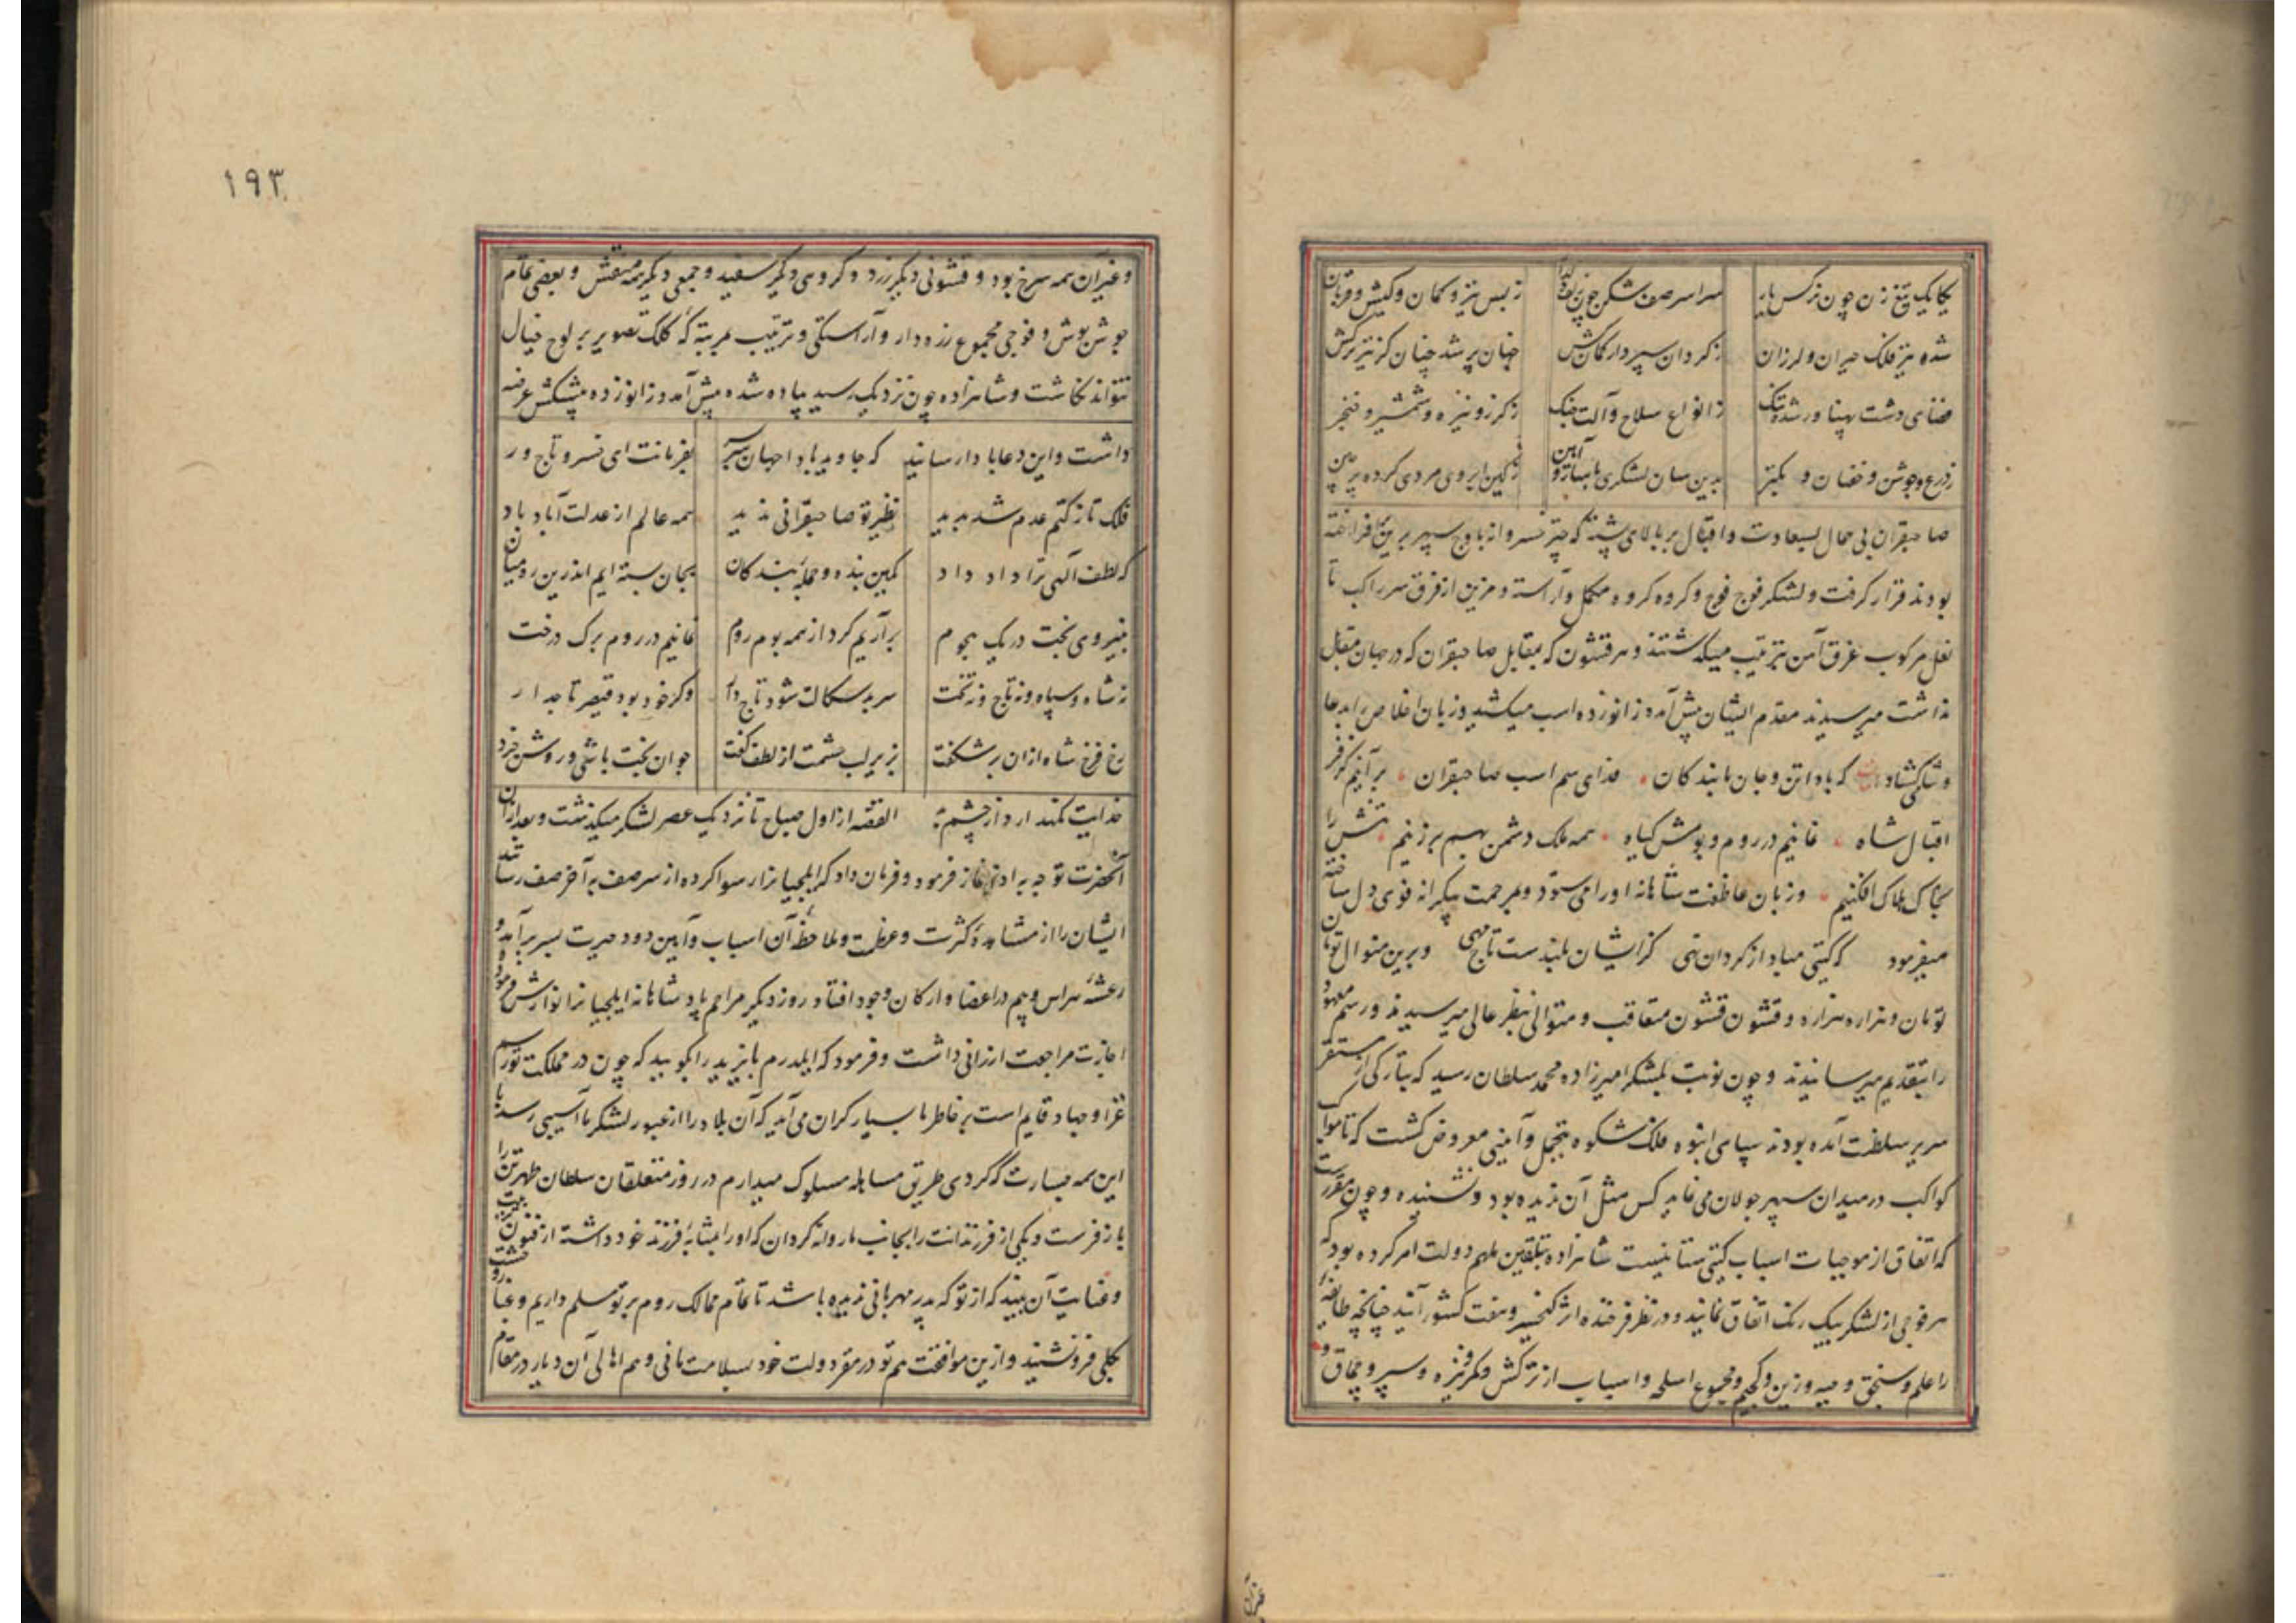 یکایک تیغ زن چون نرکس یار سراسر صف شکن چون زلف دلدار ز بس تیر و کمان و کیش و قربان
شده تیر فلک حیران و لرزان ز کردان سپردار کمان کش جهان پر شد چنان کز تیر ترکش
فضای دشت پهناور شده تنک ز انواع سلاح و آلت جنک ز کرز و نیزه و شمشیر و خنجر
ز درع و جوشن و خفتان و بکتر بدین سان لشکری با ساز و آیین ز کین ابروی مردی کرده پر چین
صاحبقران بی همال بسعادت و اقبال بر بالای پشته که چتر خسروانه باوج سپهر برین افراخته
بودند قرار کرفت و لشکر فوج فوج و کروه کروه مکمل و آراسته و مزین از فرق سر راکب تا
نعل مرکوب غرق آهن بترتیب میکذشتند و هر قشون که بمقابل صاحبقران که در جهان مقابل
نداشت میرسیدند مقدم ایشان پیش آمده زانو زده اسب میکشید و زبان اخلاص را بدعا
و ثنا می کشاد که بادا تن و جان ما بندکان فدای سم اسب صاحبقران بر آنیم کز فر
اقبال شاه نمانیم در روم و بومش کیاه همه ملک دشمن بهم بر زنیم تنش را
بخاک هلاک افکنیم و زبان عاطفت شاهانه او را می ستود و بمرحمت بیکرانه قوی دل ساخته
میفرمود که کیتی مباد از کردان تهی کز ایشان بلندست تاج مهی و برین منوال تومان
تومان و هزاره هزاره و قشون قشون متعاقب و متوالی بنظر عالی میرسیدند و رسم معهود
را بتقدیم میرسانیدند و چون نوبت بلشکر امیرزاده محمد سلطان رسید که بتازکی از مستقر
سریر سلطنت آمده بودند سپاهی انبوه فلک شکوه بتجمل و آیینی معروض کشت که تا مواکب
کواکب در میدان سپهر جولان می نماید کس مثل آن ندیده بود و نشنیده و چون مقررست
که اتفاق از موجبات اسباب کیتی ستانیست شاهزاده بتلقین ملهم دولت امر کرده بود که
هر فوجی از لشکر بیک رنک اتفاق نمایند و در نظر فرخنده اثر کیخسرو هفت کشور آیند چنانچه طایفهٔ
را علم و سنجق و جبه و زین و کجیم و مجموع اسلحه و اسباب از ترکش و کمر و نیزه و سپر و چماق و
۱۹۳
و غیر آن همه سرخ بود و قشونی دیکر زرد و کروهی دیکر سفید و جمعی دیکر همه بنفش و بعضی تمام
جوشن پوش و فوجی مجموع زره دار و آراستکی و ترتیب بمرتبهٔ که کلک تصویر بر لوح خیال
نتواند نکاشت و شاهزاده چون نزدیک رسید پیاده شده پیش آمد و زانو زده پیشکش عرضه
داشت و این دعا با دار سانید که جاوید بادا جهان سربسر بفرمانت ای خسرو تاج ور
فلک تا ز کتم عدم شد پدید نظیر تو صاحبقرانی ندید همه عالم از عدلت آباد باد
که لطف آلهی ترا داد داد کمین بنده و جملهٔ بندکان بجان بسته ایم اندرین ره میان
بنیروی بخت در یک هجوم برآریم کرد از همه بوم روم نمانیم در روم برک درخت
نه شاه و سپاه و نه تاج و نه تخت سر بدسکالت شود تاج دار وکر خود بود قیصر تاجدار
رخ فرخ شاه ازان بر شکفت بزیر لب حشمت از لطف کفت جوان بخت باشی و روشن خرد
خدایت نکهدارد از چشم بد القصه از اول صباح تا نزدیک عصر لشکر میکذشت و بعد ازان
آنحضرت توجه به ادای نماز فرمود و فرمان داد که ایلچیانرا سوار کرده از سر صف به آخر صف رسانند
ایشان را از مشاهدهٔ کثرت و عظمت و ملاحظهٔ آن اسباب و آیین دود حیرت بسر برآمد و
رعشهٔ هراس و بیم در اعضا و ارکان وجود افتاد و روز دیکر مراحم پادشاهانه ایلچیانرا نوازش فرموده
اجازت مراجعت ارزانی داشت و فرمود که ایلدرم بایزید را بکویید که چون در مملکت تو رسم
غزا و جهاد قایم است بر خاطر ما بسیار کران می آید که آن بلاد را از عبور لشکر ما آسیبی رسد با
این همه جسارت که کردی طریق مساهله مسلوک میدارم در روز متعلقان سلطان طهرتن را
باز فرست و یکی از فرزندانت را بجانب ما روانه کردان که او را بمثابهٔ فرزند خود داشته از فنون تربیت
و عنایت آن بیند که از تو که پدر مهربانی ندیده باشد تا تمام ممالک روم بر تو مسلم داریم و غبار وحشت
بکلی فرو نشیند و ازین موافقت هم تو در مقر دولت خود بسلامت مانی و هم اهالی آن دیار در مقام